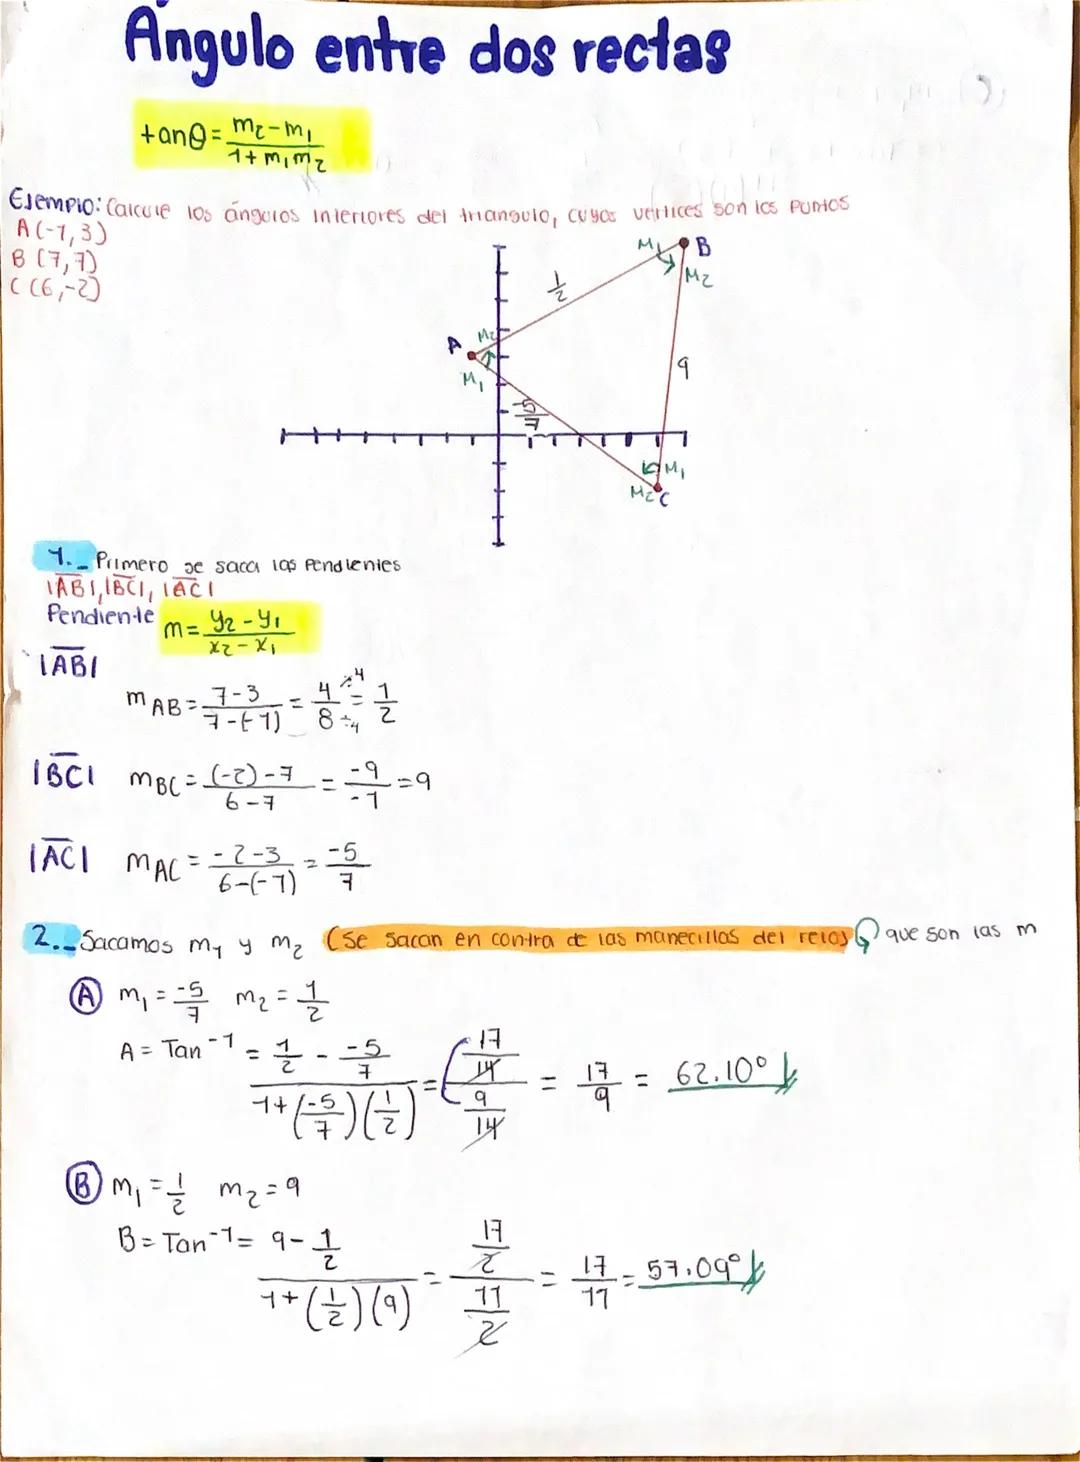 Ángulo entre dos rectas
tanθ = m₂-m₁ / 1+m₁m₂
Ejemplo: Calcule los ángulos interiores del triangulo, cuyos vertices son los puntos
A(-1,3)
B(7,7)
C(6,-2)
M₁ B
M₂
1/2
A M₂
M₁
9
-5/7
M₁
M₂ C
1._ Primero se saca las pendientes
|AB|, |BC|, |AC|
Pendiente m = y₂-y₁ / x₂-x₁
|AB|
m AB = 7-3 / 7-(-1) = 4÷4 / 8÷4 = 1/2
|BC| m BC = (-2)-7 / 6-7 = -9/-1 = 9
|AC| m AC = -2-3 / 6-(-1) = -5/7
2._ Sacamos m₁ y m₂ (se sacan en contra de las manecillas del reloj que son las m
A m₁ = -5/7 m₂ = 1/2
A = Tan⁻¹ = 1/2 - -5/7 / 1+(-5/7)(1/2) = 17/14 / 9/14 = 17/9 = 62.10°
B m₁ = 1/2 m₂ = 9
B = Tan⁻¹ = 9 - 1/2 / 1+(1/2)(9) = 17/2 / 11/2 = 17/11 = 57.09°